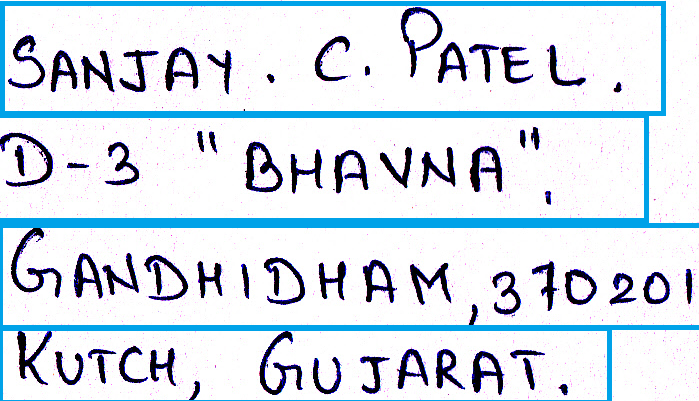 SANJAY. C. PATEL.
D-3 "BHAVNA",
GANDHIDHAM, 370201
KUTCH, GUJARAT.